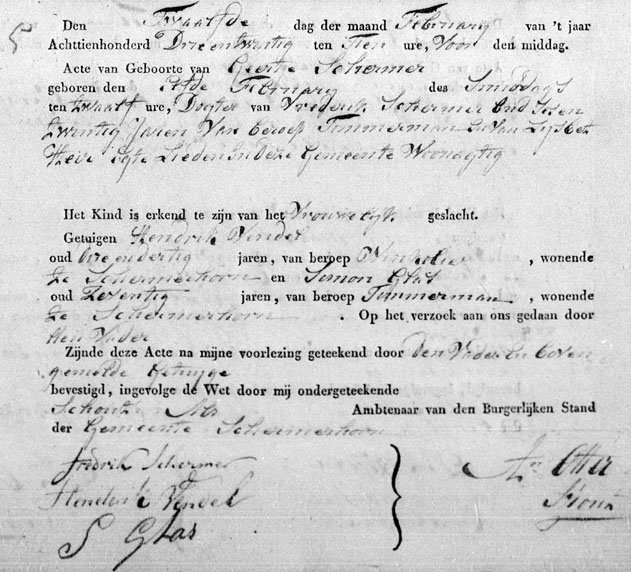 5
Den Twaalfde dag der maand February van 't jaar
Achttienhonderd Drieentwintig ten Tien ure, Voor den middag.
Acte van Geboorte van Geertje Schermer
geboren den elfde February des Smiddags
ten twaalf ure, Dogter van Vrederik Schermer Oud
twintig Jaren Van beroep Timmerman En Van Lysbet
Heir egte Lieden In deze Gemeente Woonagtig
Het Kind is erkend te zijn van het Vrouwelyk geslacht.
Getuigen Hendrik Vendel
oud jaren, van beroep , wonende
te Schermerhorn en Simon Glas
oud Zesentig jaren, van beroep Timmerman , wonende
te Schermerhorn . Op het verzoek aan ons gedaan door
den Vader
Zijnde deze Acte na mijne voorlezing geteekend door den Vader En boven
gemelde Getuige
bevestigd, ingevolge de Wet door mij ondergeteekende
Schout Ambtenaar van den Burgerlijken Stand
der Gemeente Schermerhorn
fredrik Schermer
Hendrik Vendel
S Glas
Otter
Schout